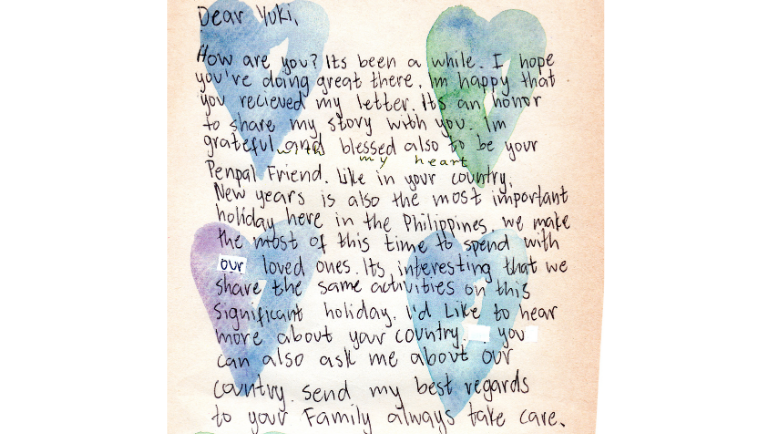 Dear Yuki,
How are you? Its been a while. I hope
you're doing great there. Im happy that
you recieved my letter. It's an honor
to share my story with you. Im
grateful and blessed also to be your
my heart
Penpal Friend. Like in your country,
New years is also the most important
holiday here in the Philippines. we make
the most of this time to spend with
our loved ones. Its interesting that we
share the same activities on this
significant holiday. I'd Like to hear
more about your country. you
can also ask me about our
country. send my best regards
to your Family always take care.